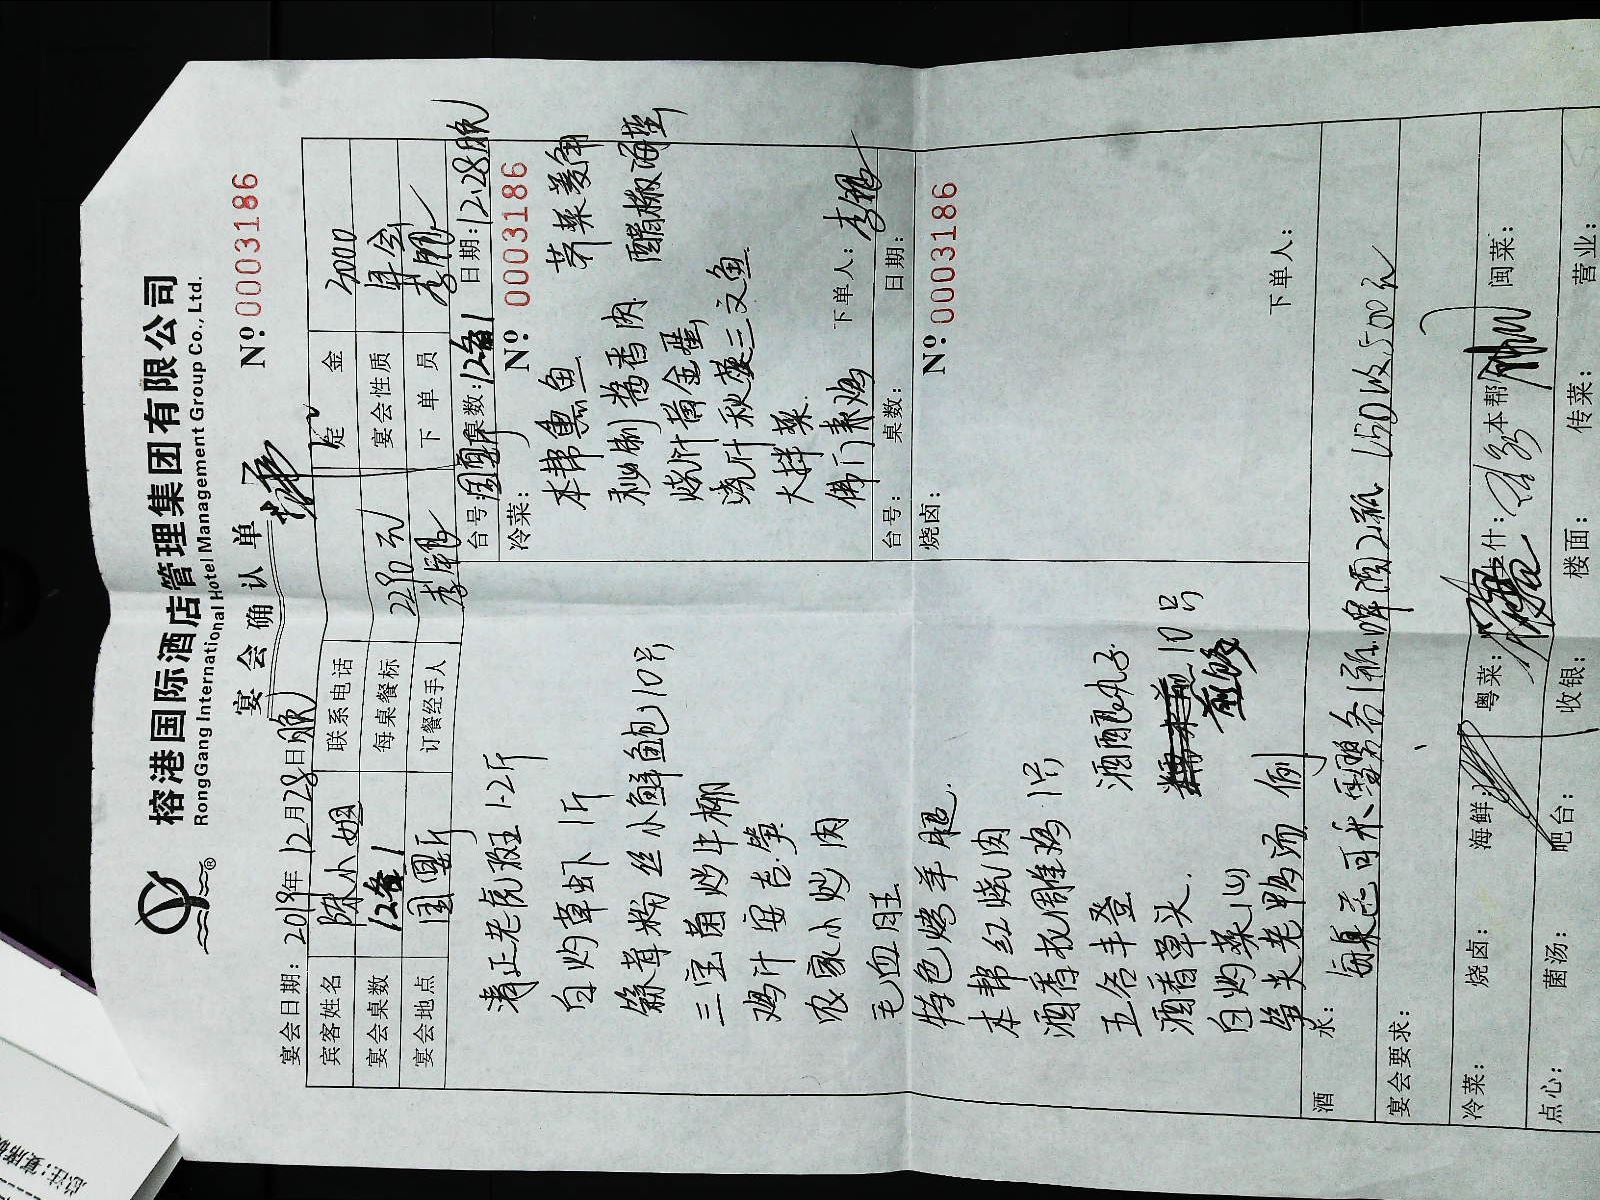 榕港国际酒店管理集团有限公司
RongGang International Hotel Management Group Co., Ltd.
宴会确认单
№ 0003186
宴会日期: 2019年12月28日晚
宾客姓名 陈小姐 联系电话 定金 2000
宴会桌数 12备1 每桌餐标 2290元 宴会性质
宴会地点 国宴厅 订餐经手人 李艳 下单员 李艳
台号: 国宴厅 桌数: 12备1 日期: 12.28晚
清正老虎斑 1.2斤
白灼草虾 1斤
粉丝小鲜鲍 10只
三宝菌炒牛柳
鸡汁安吉笋
农家小炒肉
毛血旺
特色烤羊腿
本帮红烧肉
酒香花雕鸡 1只
五谷丰登 酒酿丸子
酒香草头 10只
白灼菜心
笋尖老鸭汤 例
冷菜: № 0003186
本帮熏鱼 荠菜菱角
秘制酱香肉 醋椒海蜇
烧汁黄金蛋
浇汁秋葵三文鱼
大拌菜
佛门素鸡
下单人: 李艳
台号: 桌数: 日期:
烧卤: № 0003186
下单人:
酒水: 每桌送可乐雪碧各1瓶 啤酒2瓶
宴会要求:
冷菜: 烧卤: 海鲜: 粤菜: 上什: 本帮: 闽菜:
点心: 菌汤: 吧台: 收银: 楼面: 传菜: 营业:
总注:宴席